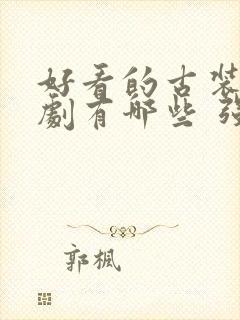 好看的古装
劇有哪些
郭楓